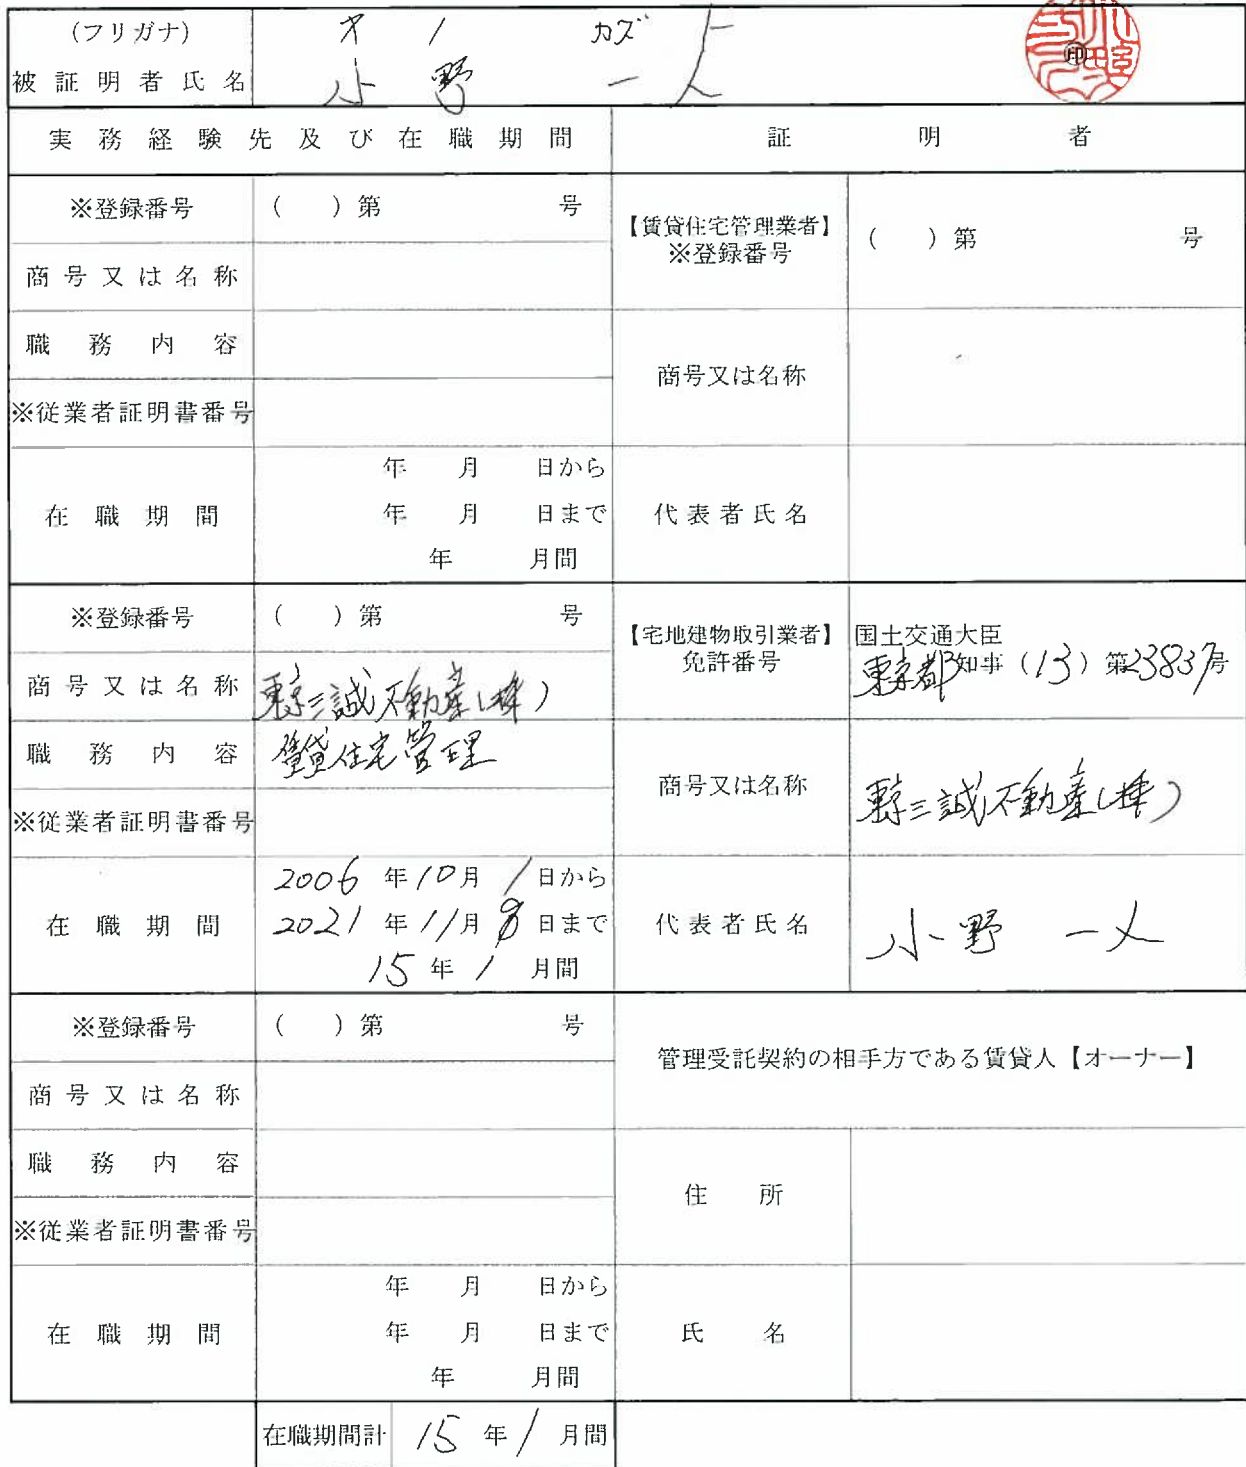 (フリガナ) オノ カズト
被証明者氏名 小野 一人 印
実務経験先及び在職期間 証明者
※登録番号 ( )第 号
【賃貸住宅管理業者】 ※登録番号 ( )第 号
商号又は名称
職務内容
商号又は名称
※従業者証明書番号
在職期間 年 月 日から
年 月 日まで
年 月間
代表者氏名
※登録番号 ( )第 号
【宅地建物取引業者】 免許番号 国土交通大臣
東京都知事 (13) 第23837号
商号又は名称 東京三誠不動産(株)
職務内容 賃貸住宅管理
商号又は名称 東京三誠不動産(株)
※従業者証明書番号
在職期間 2006年10月1日から
2021年11月8日まで
15年1月間
代表者氏名 小野 一人
※登録番号 ( )第 号
管理受託契約の相手方である賃貸人【オーナー】
商号又は名称
職務内容
住所
※従業者証明書番号
在職期間 年 月 日から
年 月 日まで
年 月間
氏名
在職期間計 15年1月間